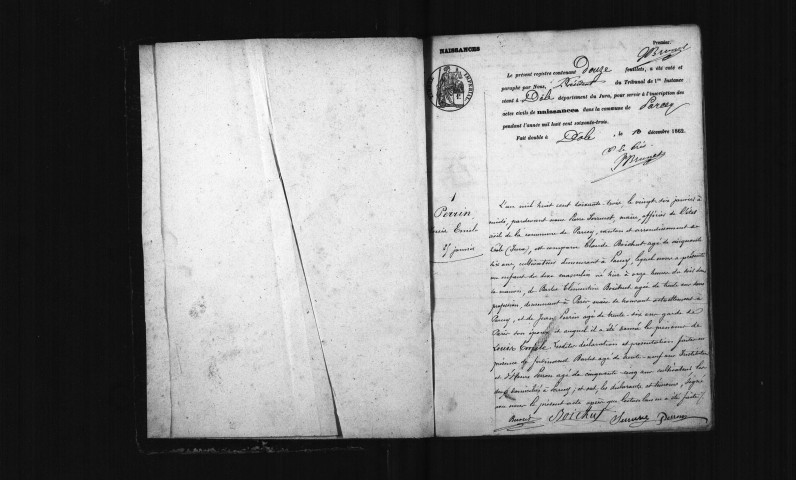 NAISSANCES
Premier.
Le présent registre contenant Douze feuillets, a été coté et
paraphé par Nous, Président du Tribunal de 1re Instance
séant à Dole département du Jura, pour servir à l'inscription des
actes civils de naissances dans la commune de Parcey
pendant l'année mil huit cent soixante-trois.
Fait double à Dole, le 10 décembre 1862.
1
Perrin
Louis Emile
27 janvier
L'an mil huit cent soixante-trois, le vingt-six janvier à
midi, pardevant nous Pierre maire, officier de l'état
civil de la commune de Parcey, canton et arrondissement de
Dole (Jura), est comparu Claude Boichut agé de cinquante
six ans, cultivateur demeurant à Parcey, lequel nous a présenté
un enfant du sexe masculin né hier à onze heures du soir dans
sa maison, de Clémentine Boichut agée de trente ans sans
profession, demeurant à Paris mais se trouvant actuellement à
Parcey, et de Jean Perrin agé de trente-six ans garde de
Paris son époux et auquel il a été donné les prénoms de
Louis Emile. Lesdites déclaration et présentation faites en
présence de Ferdinand agé de trente-neuf ans Instituteur
et d'Henri Perron agé de cinquante cinq ans cultivateur les
deux domiciliés à Parcey; et ont, les déclarants et témoins, signé
avec nous le présent acte après que lecture leur en a été faite.
Boichut